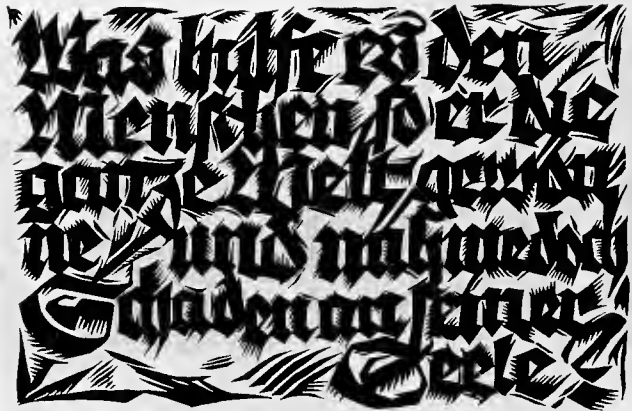 Was hülfe es den
Menschen so er die
gantze Welt gewön
ne / und nähme doch
Schaden an seiner
Seele